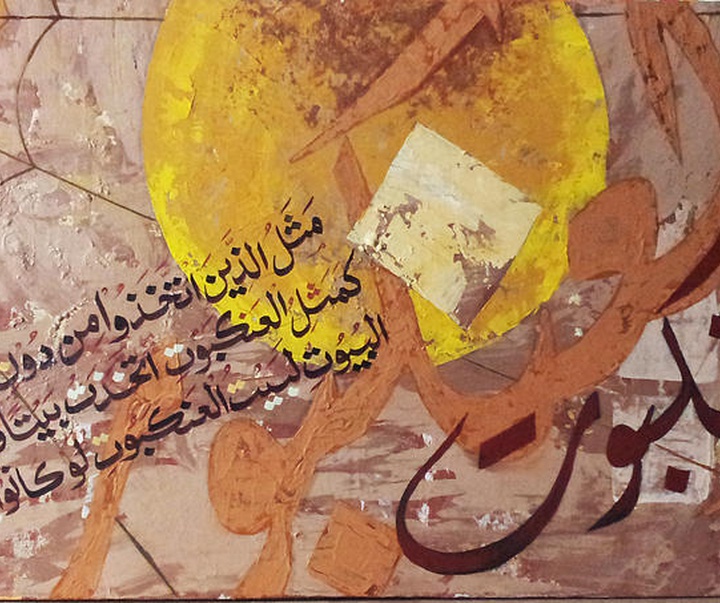 مَثَلُ الذَينَ اتخَذُوا من دُون
كمَثل العَنكبُوت اتخذت بيَتا و
البيُوت لبيت العنكبوت لو كانوا
نكبوت